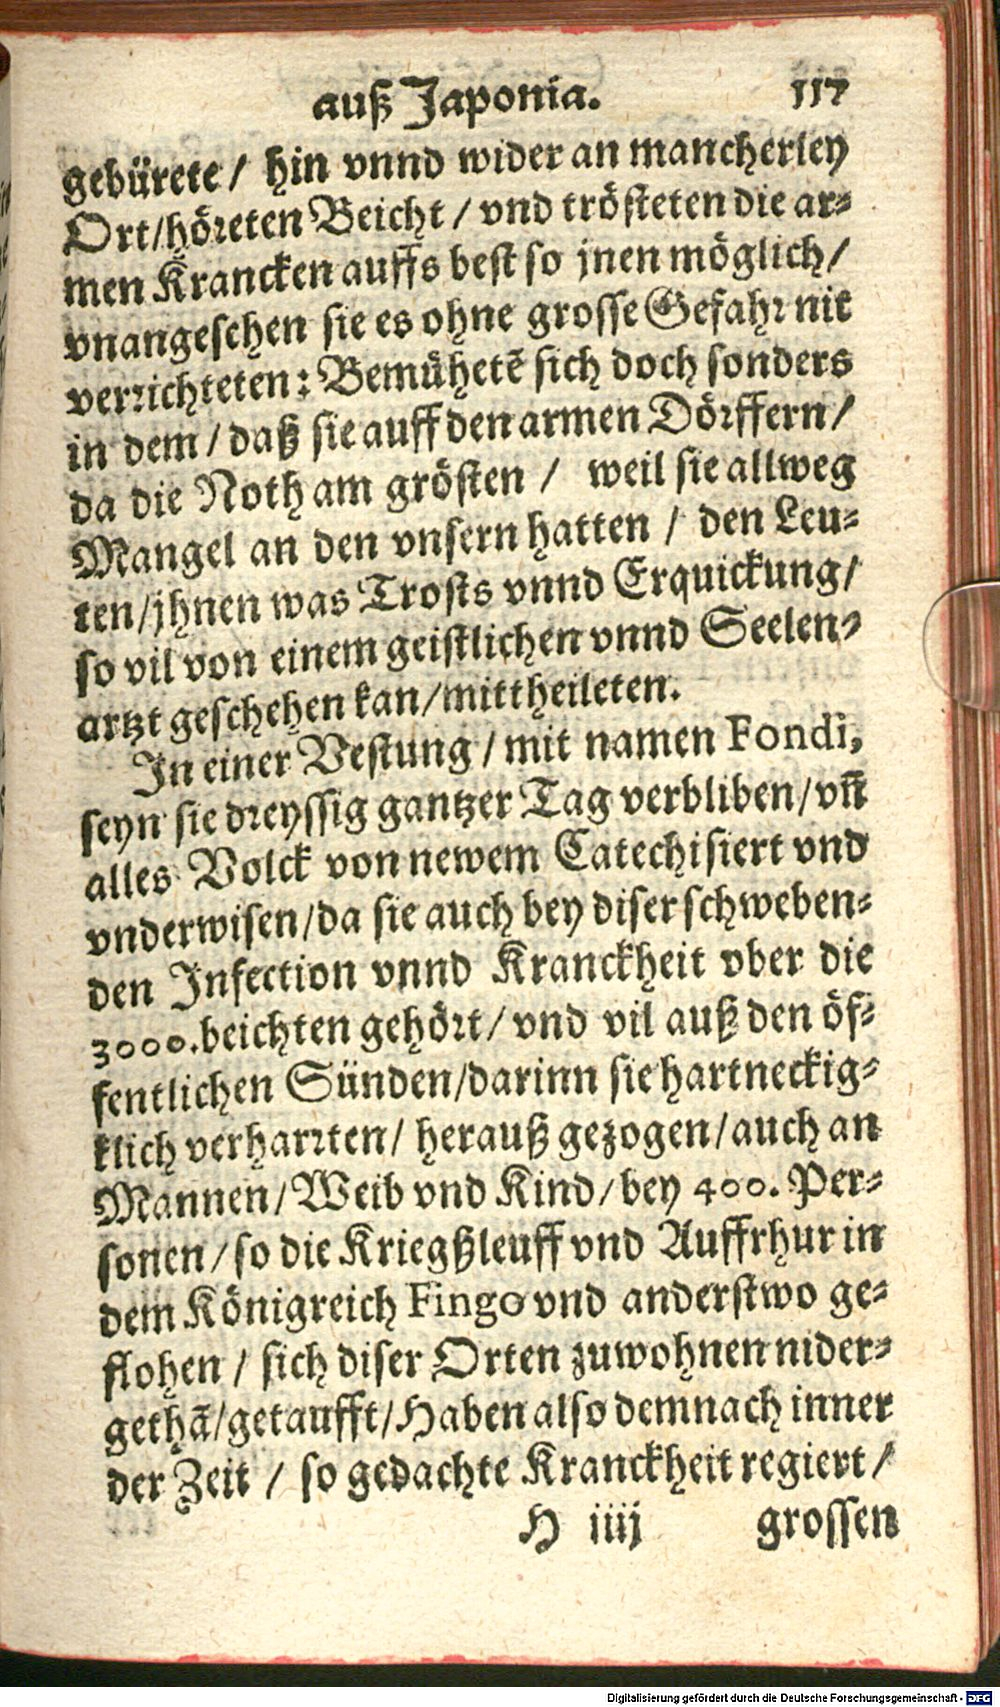 auß Japonia. 117
gebürete / hin vnnd wider an mancherley
Ort/höreten Beicht / vnd trösteten die ar-
men Krancken auffs best so jnen möglich/
vnangesehen sie es ohne grosse Gefahr nit
verrichteten: Bemühetẽ sich doch sonders
in dem / daß sie auff den armen Dörffern/
da die Noth am grösten / weil sie allweg
Mangel an den vnsern hatten / den Leu-
ten/jhnen was Trosts vnnd Erquickung/
so vil von einem geistlichen vnnd Seelen-
artzt geschehen kan/mittheileten.
In einer Vestung / mit namen Fondi,
seyn sie dreyssig gantzer Tag verbliben/vñ
alles Volck von newem Catechisiert vnd
vnderwisen/da sie auch bey diser schweben-
den Infection vnnd Kranckheit vber die
3000. beichten gehört/ vnd vil auß den öf-
fentlichen Sünden/darinn sie hartneckig-
klich verharrten/ herauß gezogen/auch an
Mannen/Weib vnd Kind/bey 400. Per-
sonen/so die Kriegßleuff vnd Auffrhur in
dem Königreich Fingo vnd anderstwo ge-
flohen / sich diser Orten zuwohnen nider-
gethã/getaufft/Haben also demnach inner
der Zeit / so gedachte Kranckheit regiert /
H iiij grossen
Digitalisierung gefördert durch die Deutsche Forschungsgemeinschaft - DFG